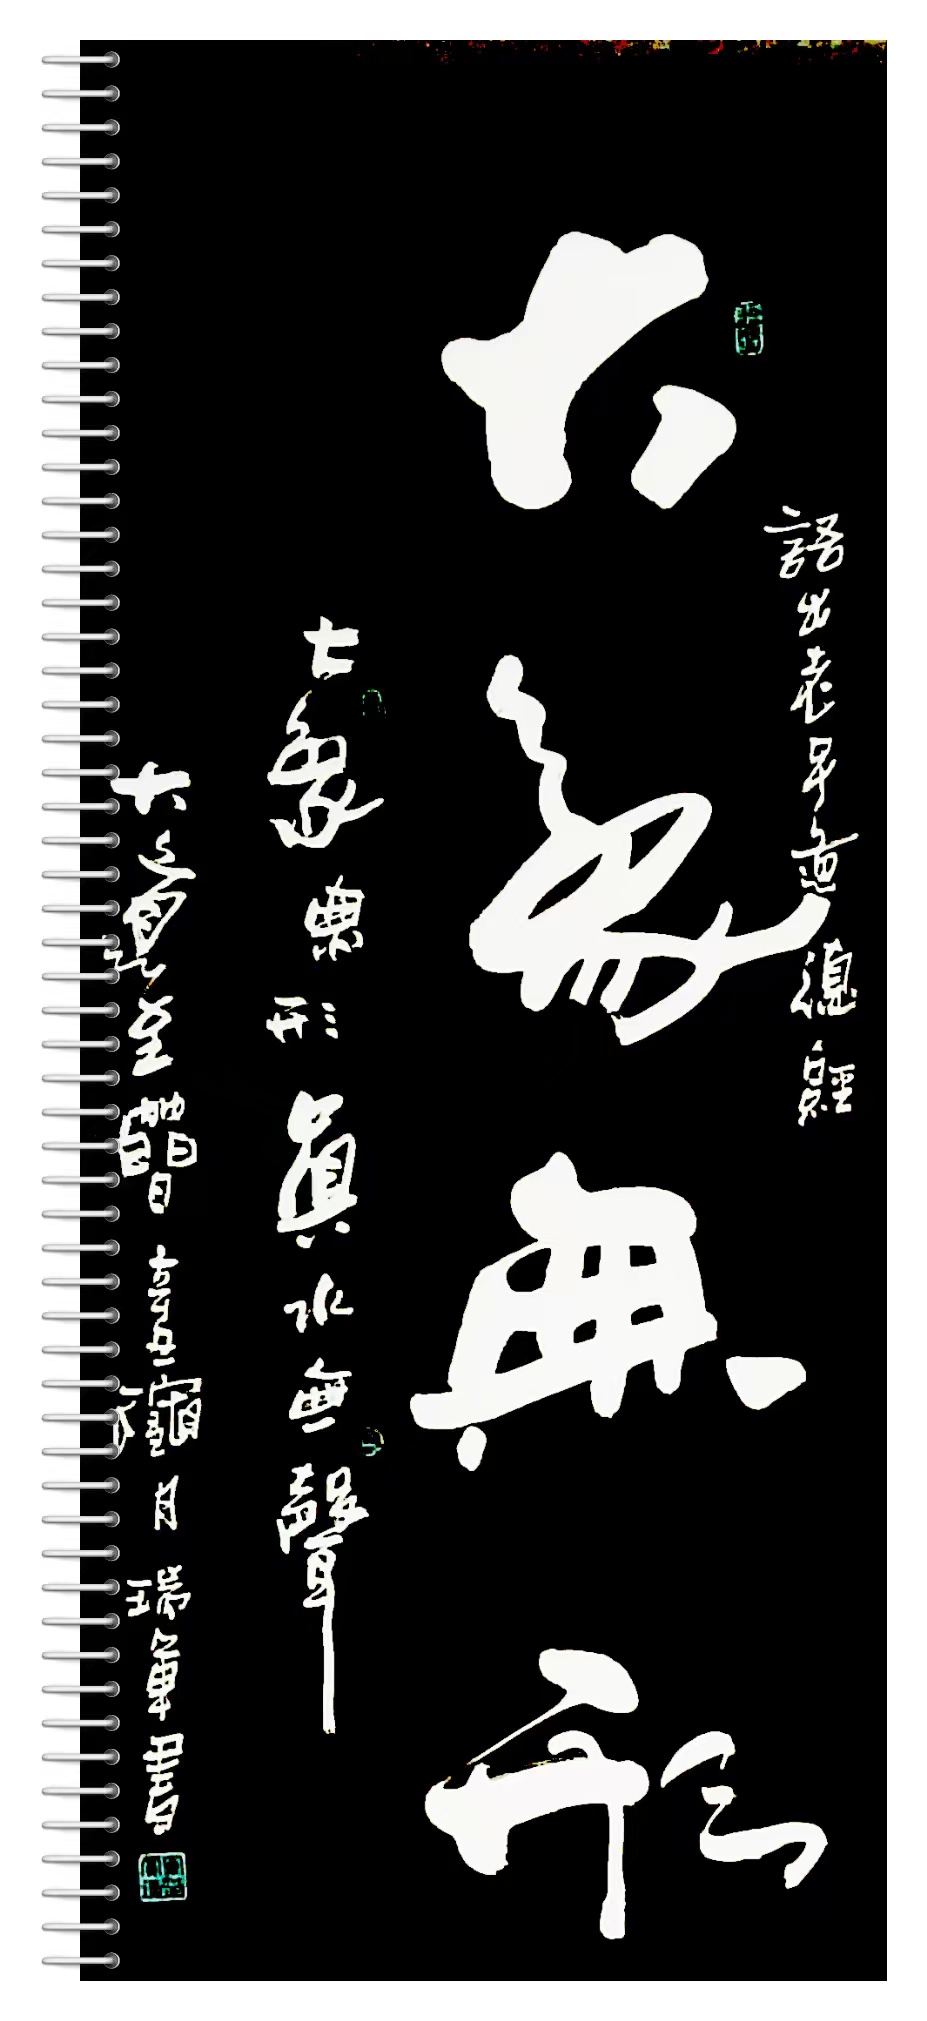 語出老子道德經
大象無形
大象無形真水無聲
大道至簡 辛丑臘月瑞軍書